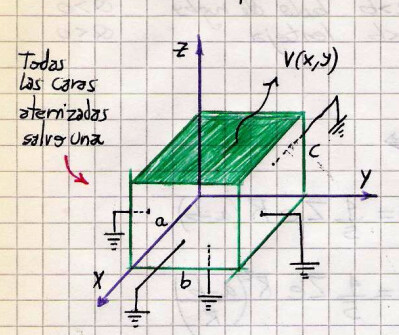 Z
V(x,y)
Todas
las caras
aterrizadas
salvo una
c
Y
a
X
b